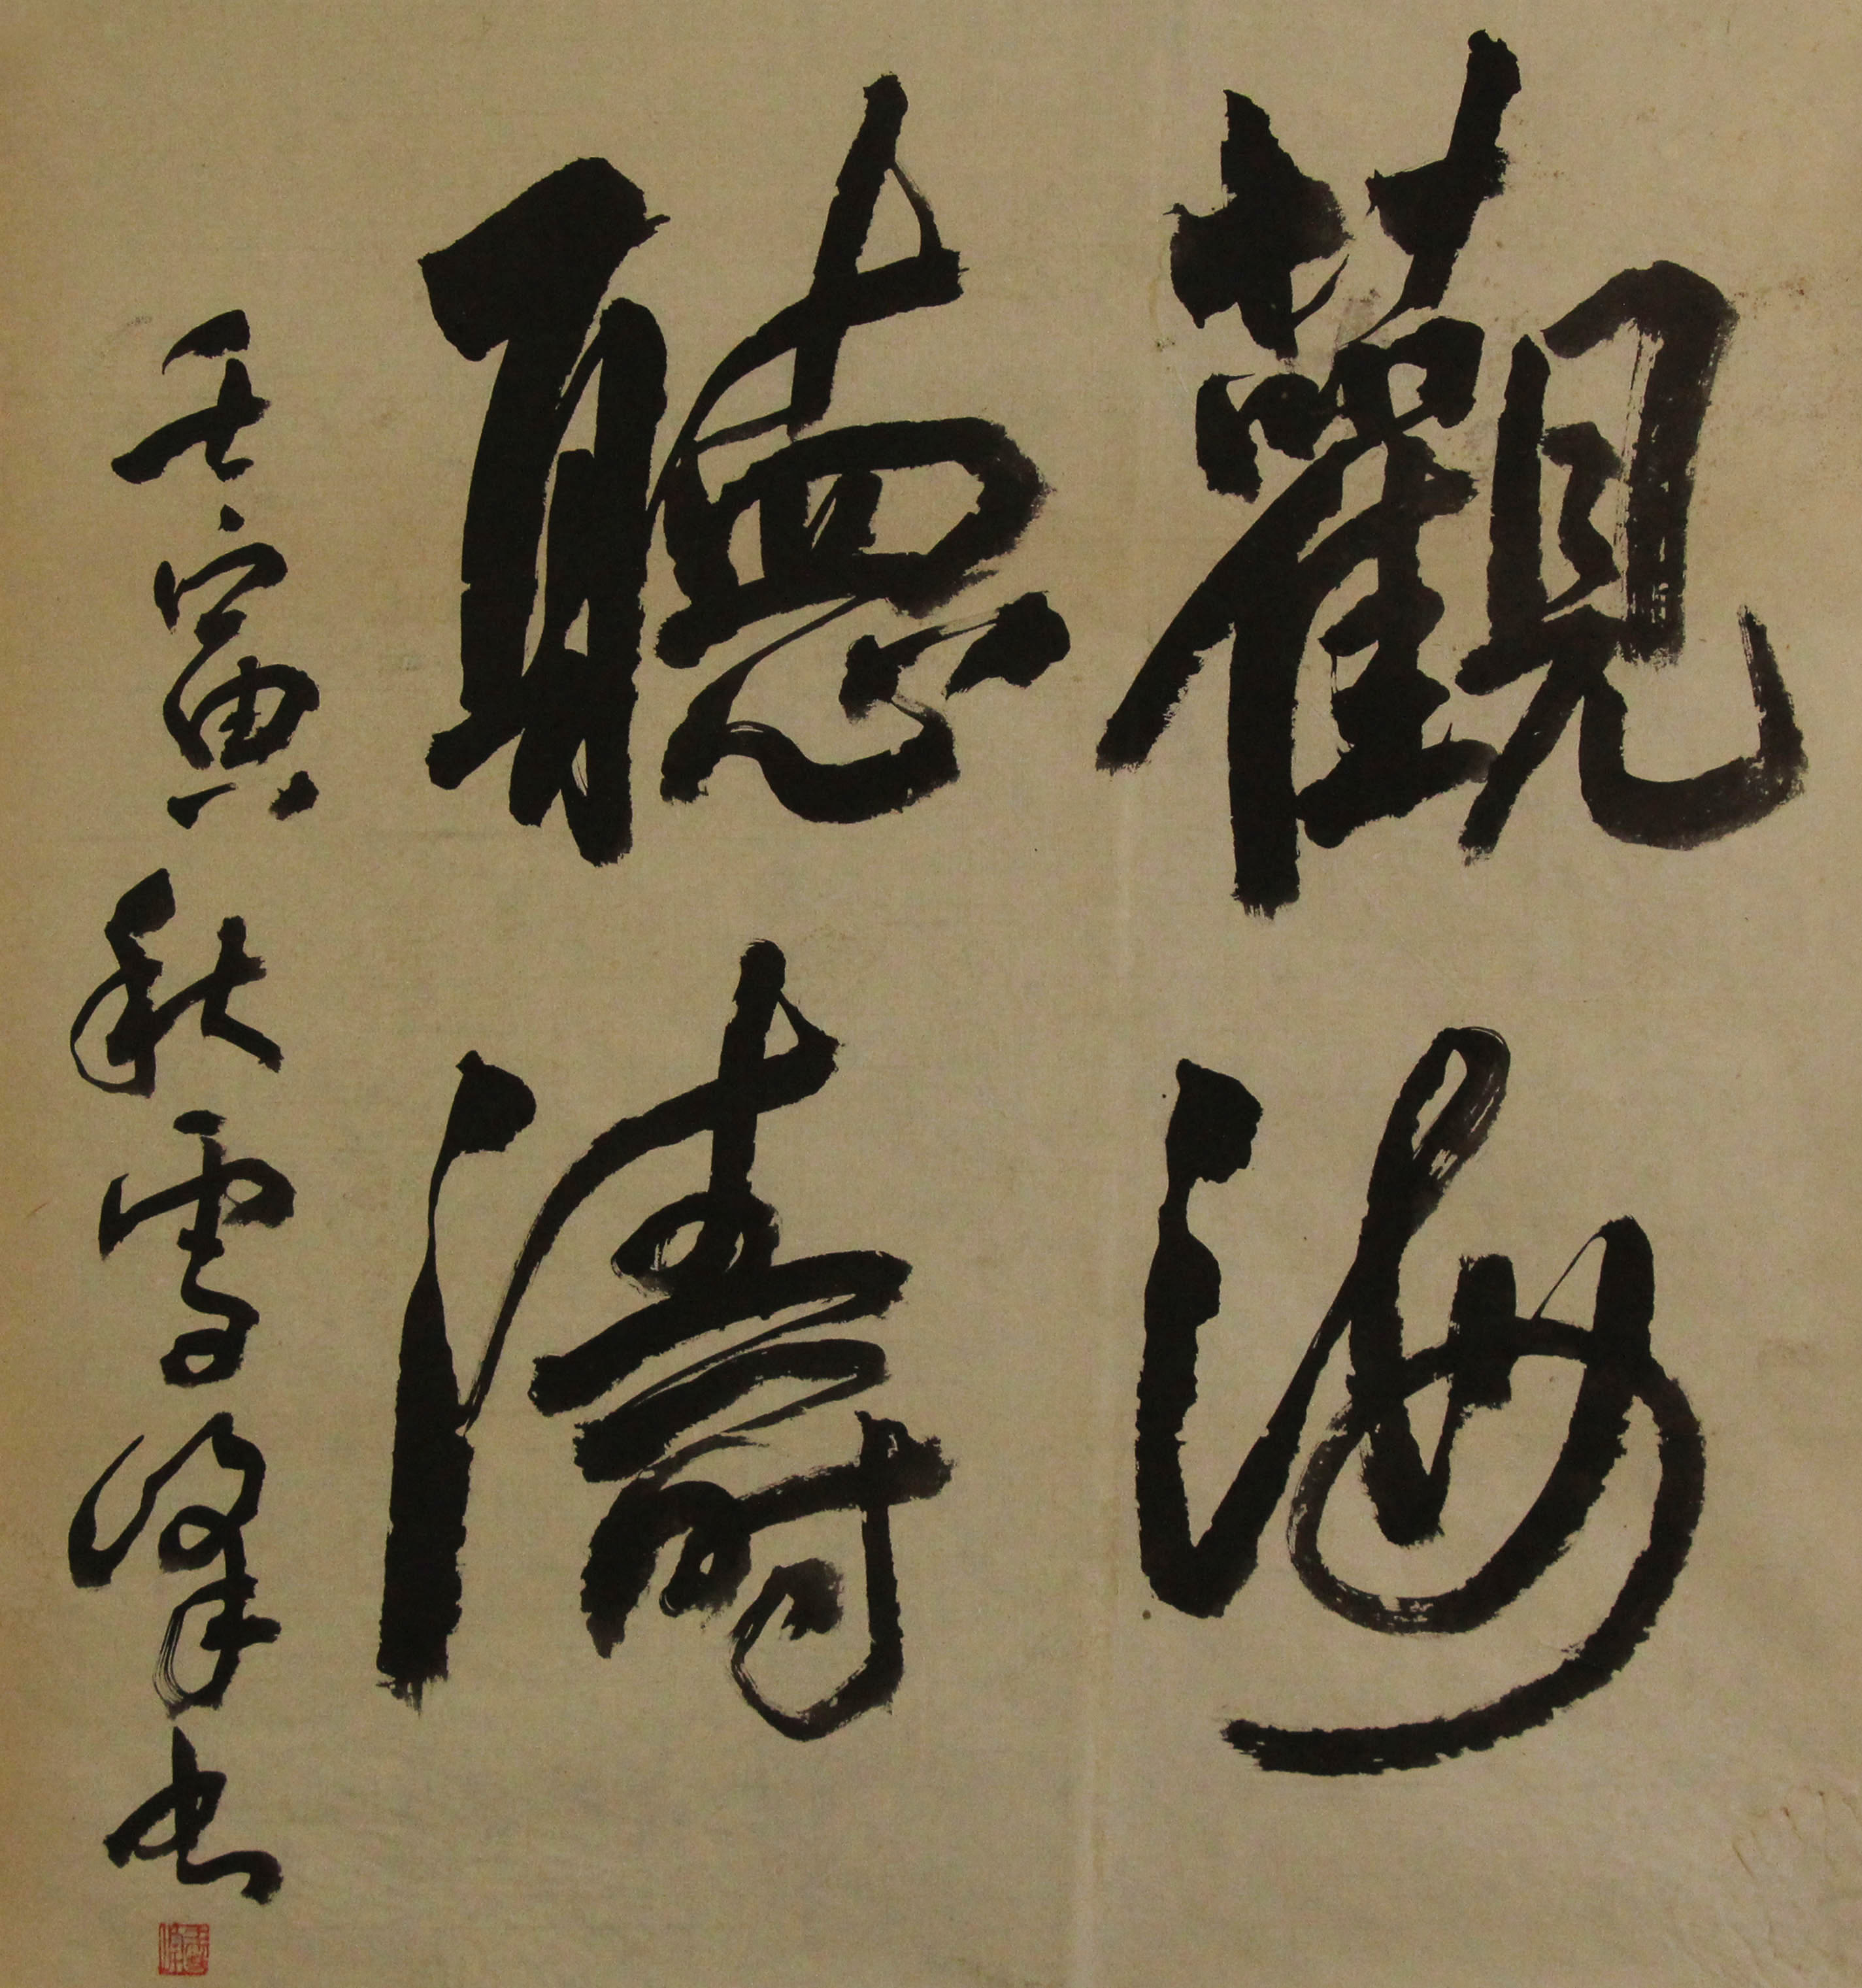 觀海
聽濤
壬寅秋雪峰书